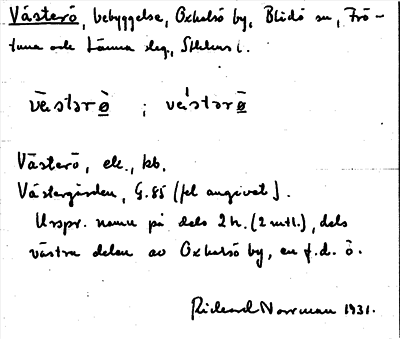 Västerö, bebyggelse, Oxhalsö by, Blidö sn, Frö-
tuna och Länna slg, Sthlms l.
västərö ; västərö
Västerö, ek., kb.
Västergården, G.85 (fel angivet).
Urspr. namn på dels 2 h. (2 mtl.), dels
västra delen av Oxhalsö by, en f.d. ö.
Rickard Norrman 1931.